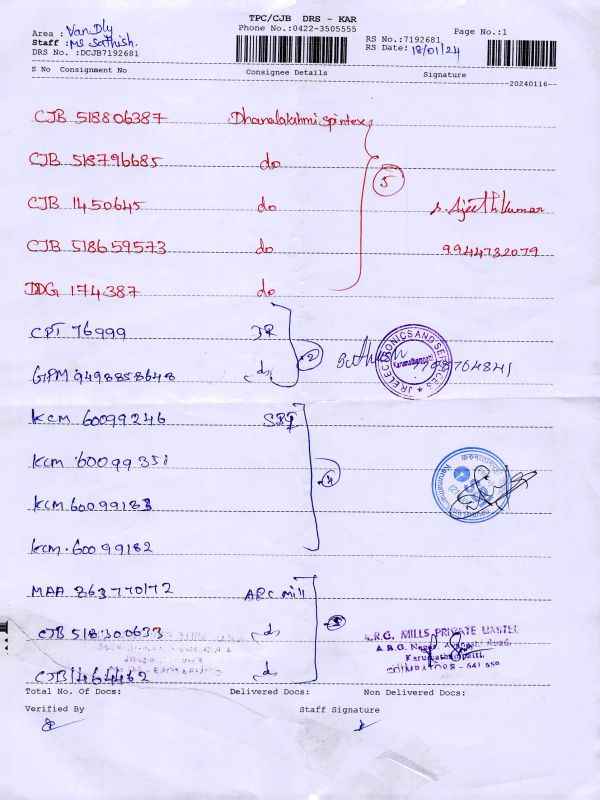 TPC/CJB DRS - KAR
Area : Van Dly
Phone No.:0422-3505555
Page No.:1
Staff : Ms Sathish.
RS No.:7192681
DRS No. :DCJB7192681
RS Date: 18/01/24
S No Consignment No Consignee Details Signature
20240116
CJB 518806387 Dhanalakshmi Spintex
CJB 518796685 do
5
CJB 1450645 do S. Ajeeth Kumar
CJB 518659573 do 9944732079
DDG 174387 do
CPT 76999 JR
2
JR ELECTRONICS AND SERVICES
Karumathampatti
GPM 9498858648 do
KCM 60099246 SBI
KCM 6009935
4
KCM 60099183
KCM. 60099182
MAA 863770172 ARC mill
3
CJB 518300633 do
A.R.G. MILLS PRIVATE LIMITED
A.R.G. Nagar, Avinashi Road,
Karumathampatti
COIMBATORE - 641 659
CJB 1464462 do
Total No. Of Docs: Delivered Docs: Non Delivered Docs:
Verified By Staff Signature